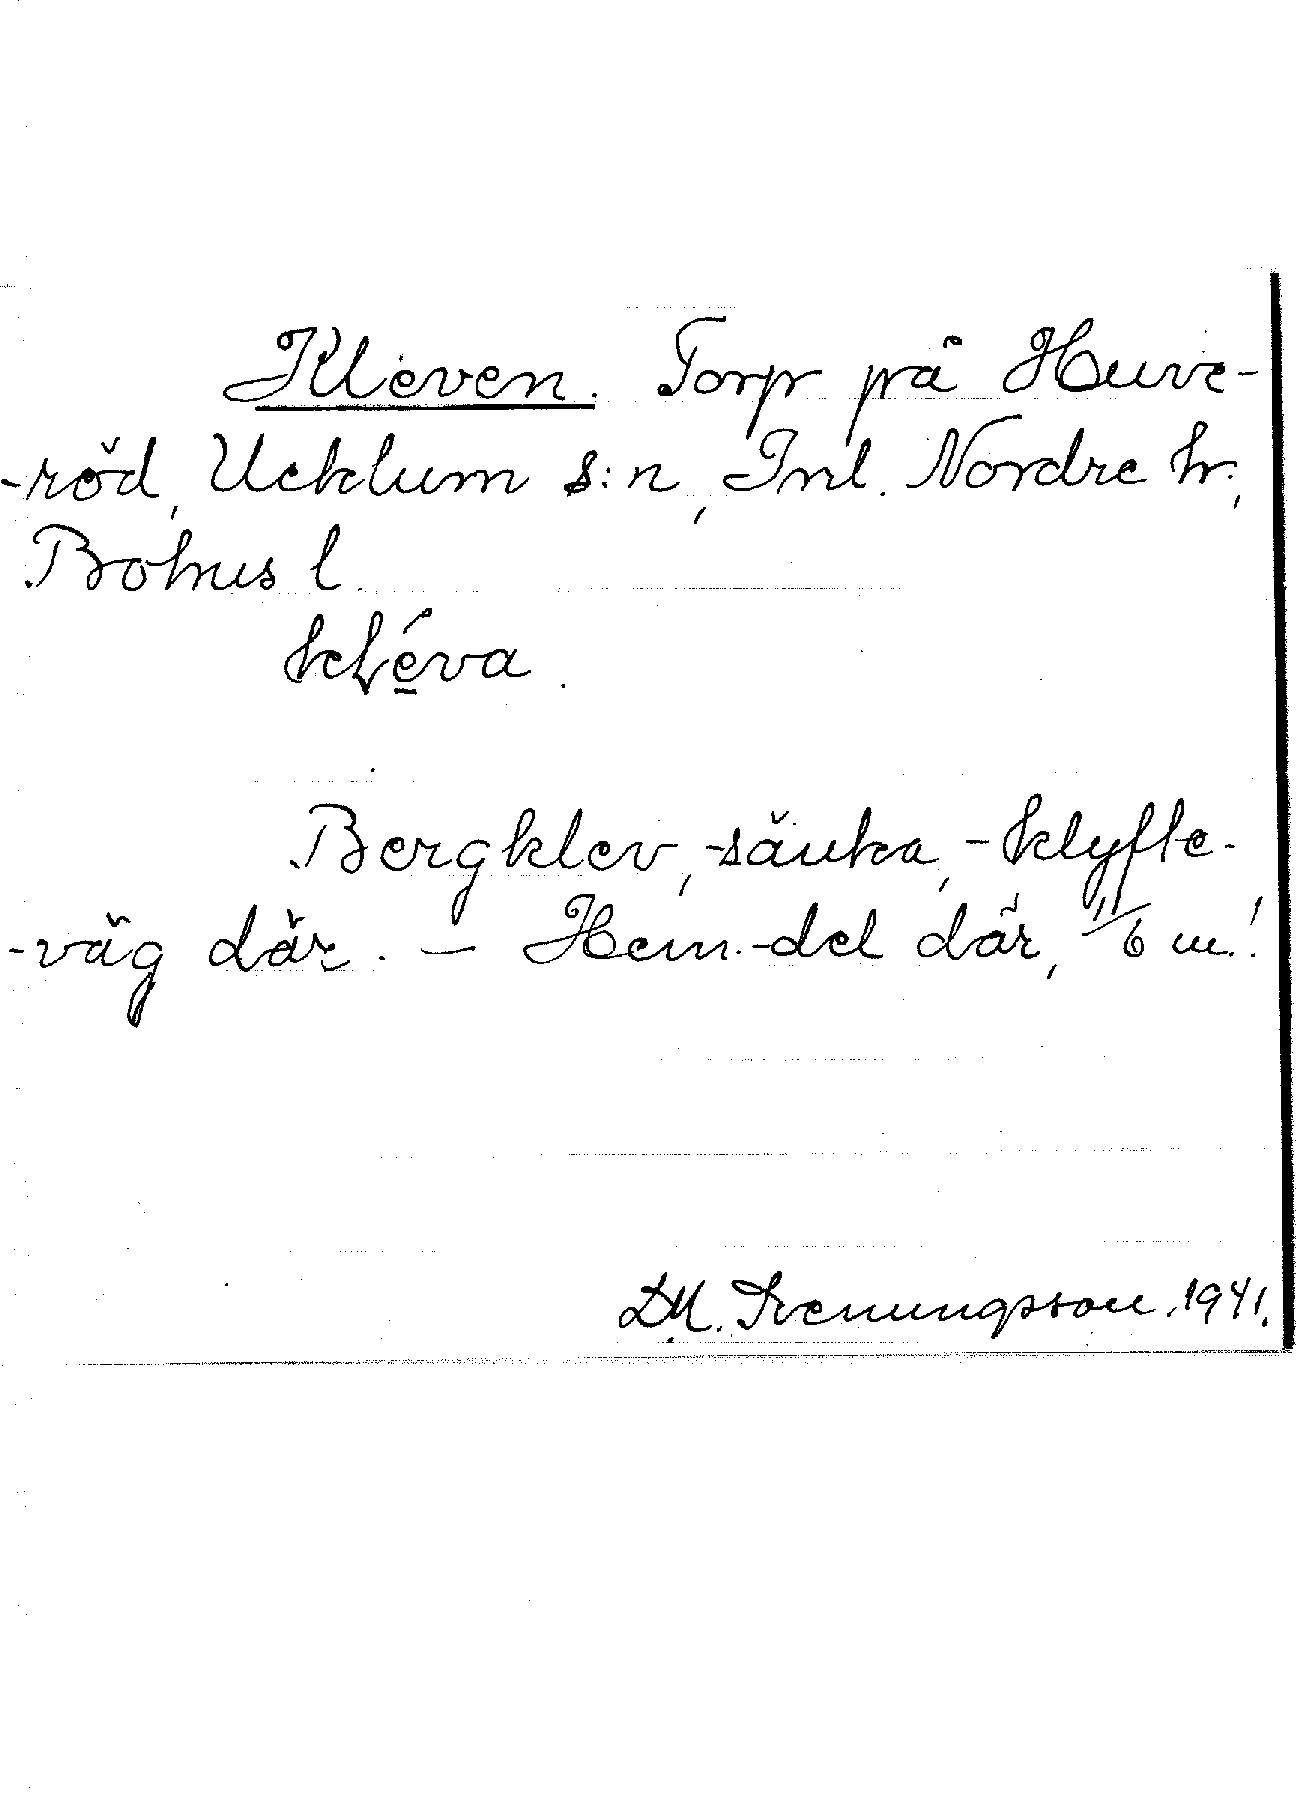 Kleven. Torp på Huve-
-röd, Ucklum s:n, Inl. Nordre hr.,
Bohus l.
kLé̱va.
Bergklev, -sänka, -klyfte-
-väg där. — Hem.-del där, 1/6 m.!
D.M. Svenungsson. 1941.